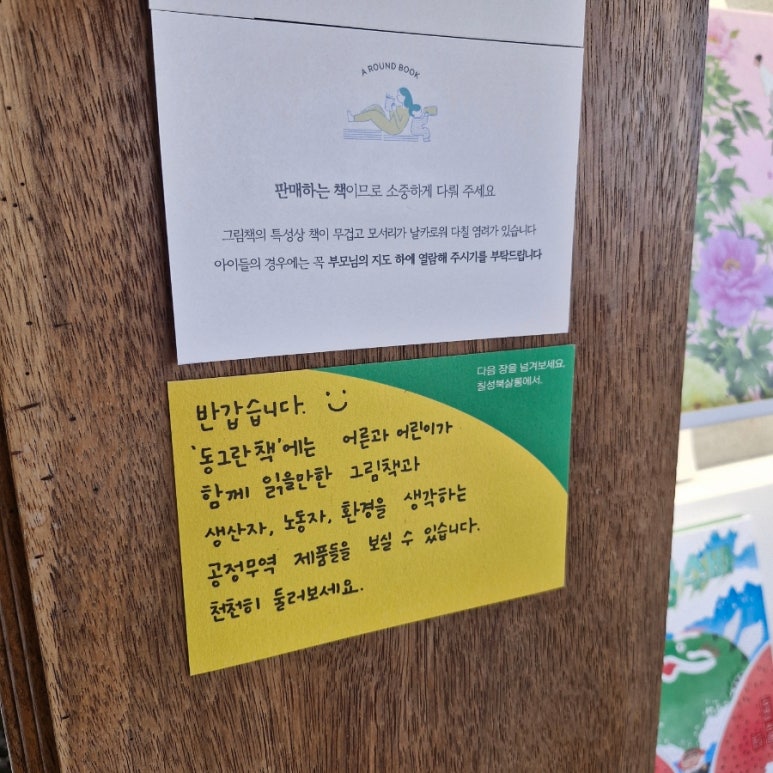 A ROUND BOOK
판매하는 책이므로 소중하게 다뤄 주세요
그림책의 특성상 책이 무겁고 모서리가 날카로워 다칠 염려가 있습니다
아이들의 경우에는 꼭 부모님의 지도 하에 열람해 주시기를 부탁드립니다
다음 장을 넘겨보세요.
칠성북살롱에서.
반갑습니다.
'동그란 책'에는 어른과 어린이가
함께 읽을만한 그림책과
생산자, 노동자, 환경을 생각하는
공정무역 제품들을 보실 수 있습니다.
천천히 둘러보세요.